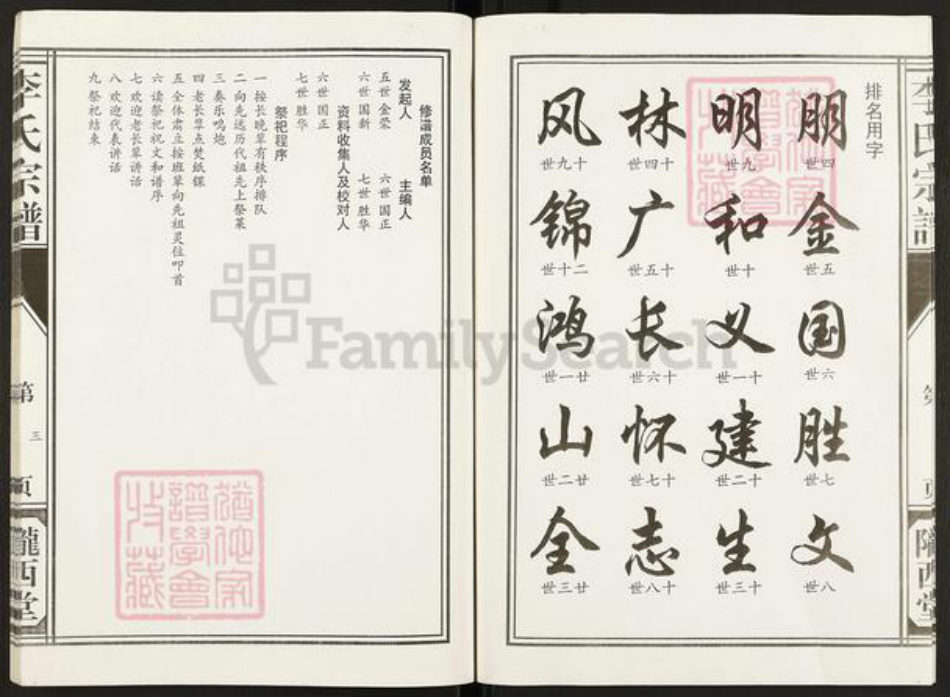 排名用字
朋 金 国 胜 文
世四 世五 世六 世七 世八
明 和 义 建 生
世九 世十 世一十 世二十 世三十
林 广 长 怀 志
世四十 世五十 世六十 世七十 世八十
风 锦 鸿 山 全
世九十 世十二 世一廿 世二廿 世三廿
李氏宗譜
隴西堂
修谱成员名单
发起人 主编人
五世 金荣 六世 国正
六世 国新 七世 胜华
资料收集人及校对人
六世 国正
七世 胜华
祭祀程序
一 按长晚辈有秩序排队
二 向先远历代祖先上祭菜
三 奏乐鸣炮
四 老长辈点焚纸锞
五 全体肃立按班辈向先祖灵位叩首
六 读祭祀祝文和谱序
七 欢迎老长辈讲话
八 欢迎代表讲话
九 祭祀结束
李氏宗譜
第三页
隴西堂
FamilySearch